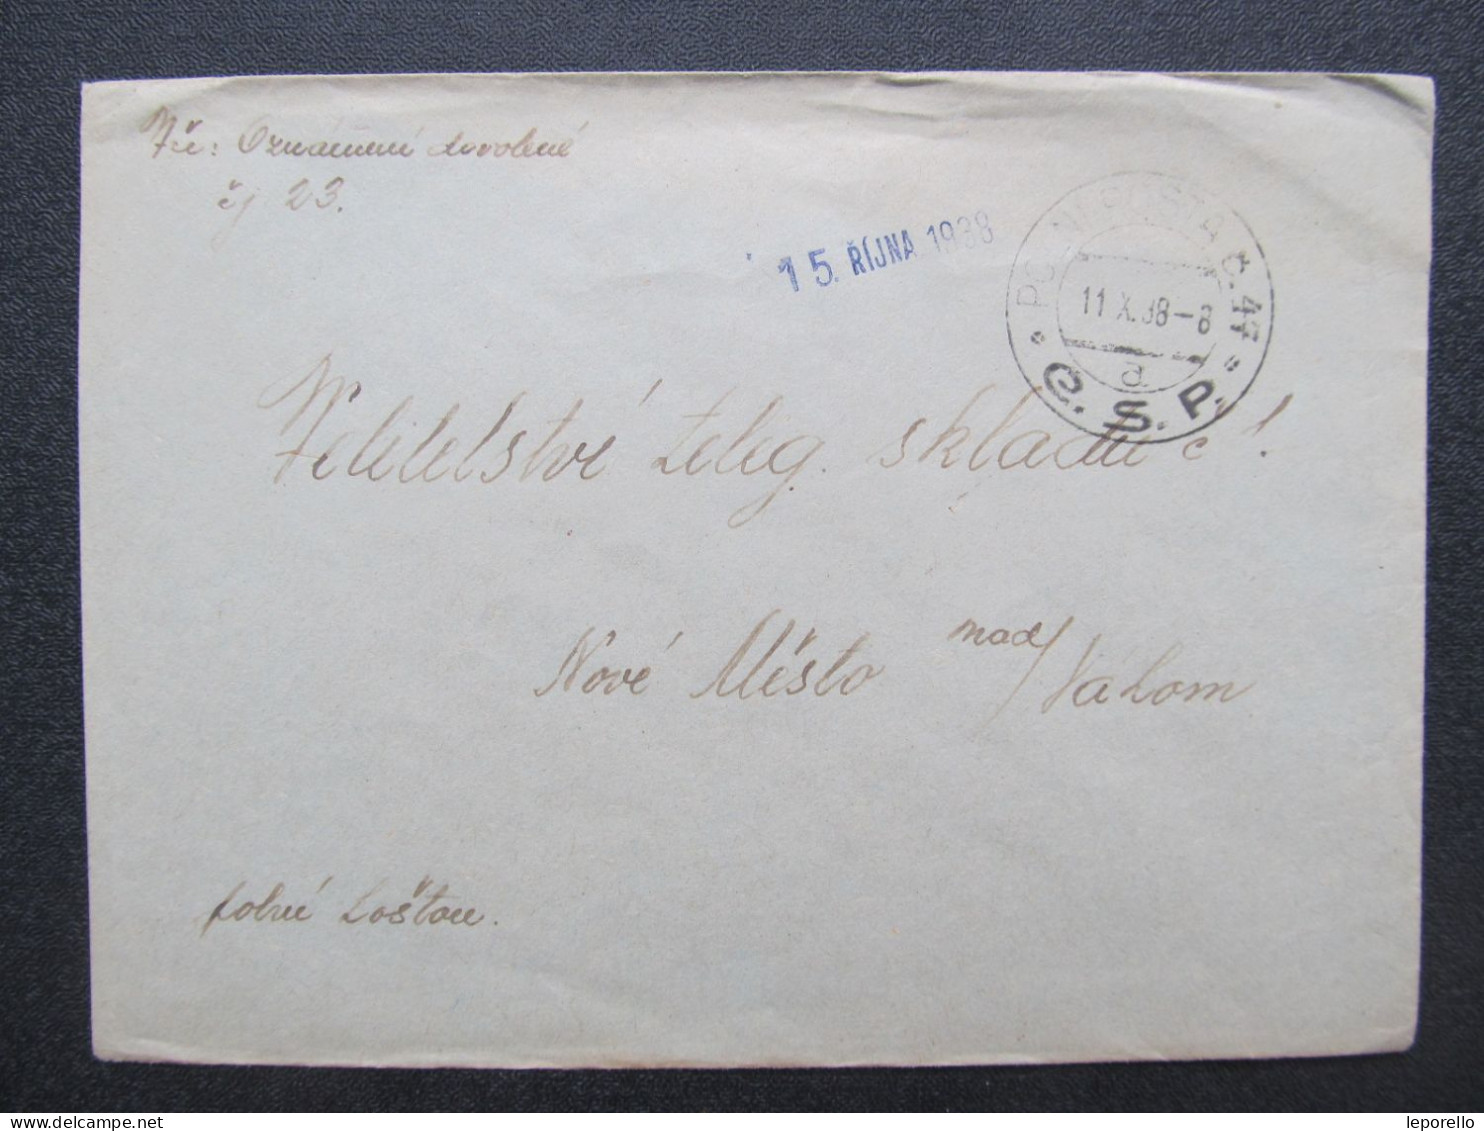 Oznámení dovolené
čj 23.
15. ŘÍJNA 1938
POLNÍ POŠTA Č. 47
11 X. 38 - 8
a
Č. S. P.
Velitelství teleg. skladu č 1.
Nové Město nad Váhom
polní poštou.
leporello